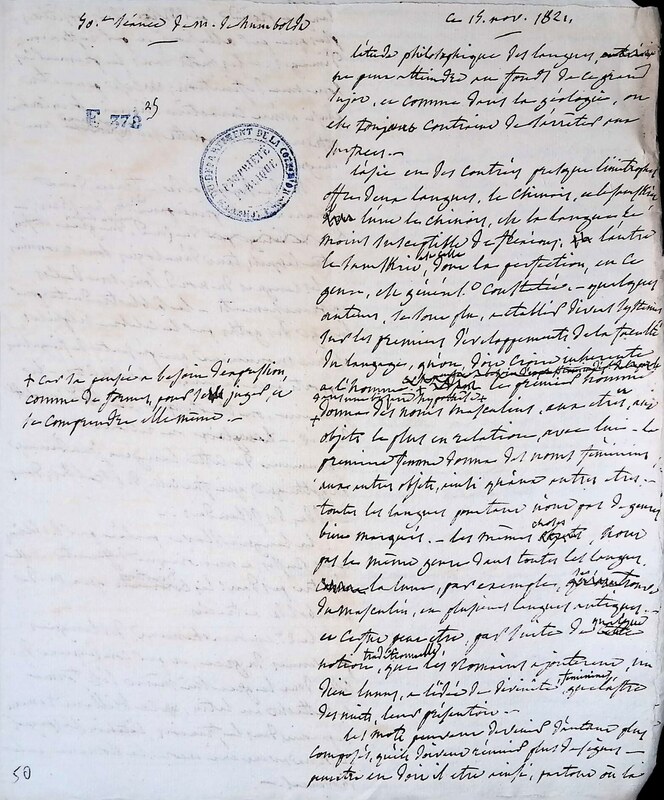 30.e séance de m. de humboldt
ce 15. nov. 1821.
E 372 25
DEPARTEMENT DE LA CORSE
PROPRIÉTÉ PUBLIQUE
l'étude philosophique des langues,
ne peut atteindre au fond de ce grand
sujet, et comme dans la géologie, on
est toujours contraint de s'arrêter aux
surfaces. —
l'asie en des contrées presque limitrophes
offre deux langues, le chinois, et le sanskrit
l'une le chinois, est la langue la
moins susceptible de flexions, l'autre
le sanskrit, est celle dont la perfection, en ce
genre, est général.t constatée. — quelques
auteurs, se sont plu, à établir divers systèmes
sur les premiers développements de la faculté
du langage, qu'on doit croire inhérente
à l'homme + le premier homme
donna des noms masculins, aux êtres, aux
objets le plus en relation, avec lui — la
première femme donna des noms féminins,
aux autres objets, ainsi qu'aux autres êtres. —
toutes les langues pourtant n'ont pas de genres
bien marqués. — les mêmes choses, n'ont
pas le même genre dans toutes les langues.
la lune, par exemple,
du masculin, en plusieurs langues antiques. —
et c'est peut être, par suite de quelque
notion traditionnelle, que les Romains ajoutèrent, un
dieu lunus, à l'idée de divinité féminine, que l'astre
des nuits, leur présentoit. —
les mots peuvent devenir d'autant plus
composés, qu'ils doivent réunir plus de signes —
peut être en doit il être ainsi, partout où la
+ car la pensée a besoin d'expression,
comme de formes, pour se juger et
se comprendre elle même. —
50